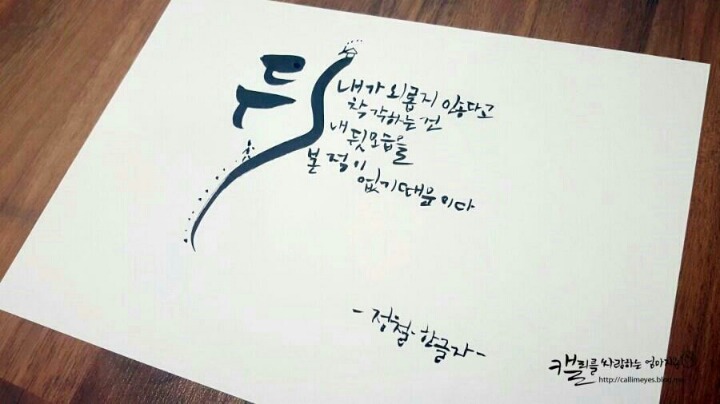 뒤
내가 외롭지 않다고
착각하는 건
내 뒷모습을
본 적이
없기 때문이다
- 정철. 한글자 -
캘리를 사랑하는
http://callimeyes.blog.me